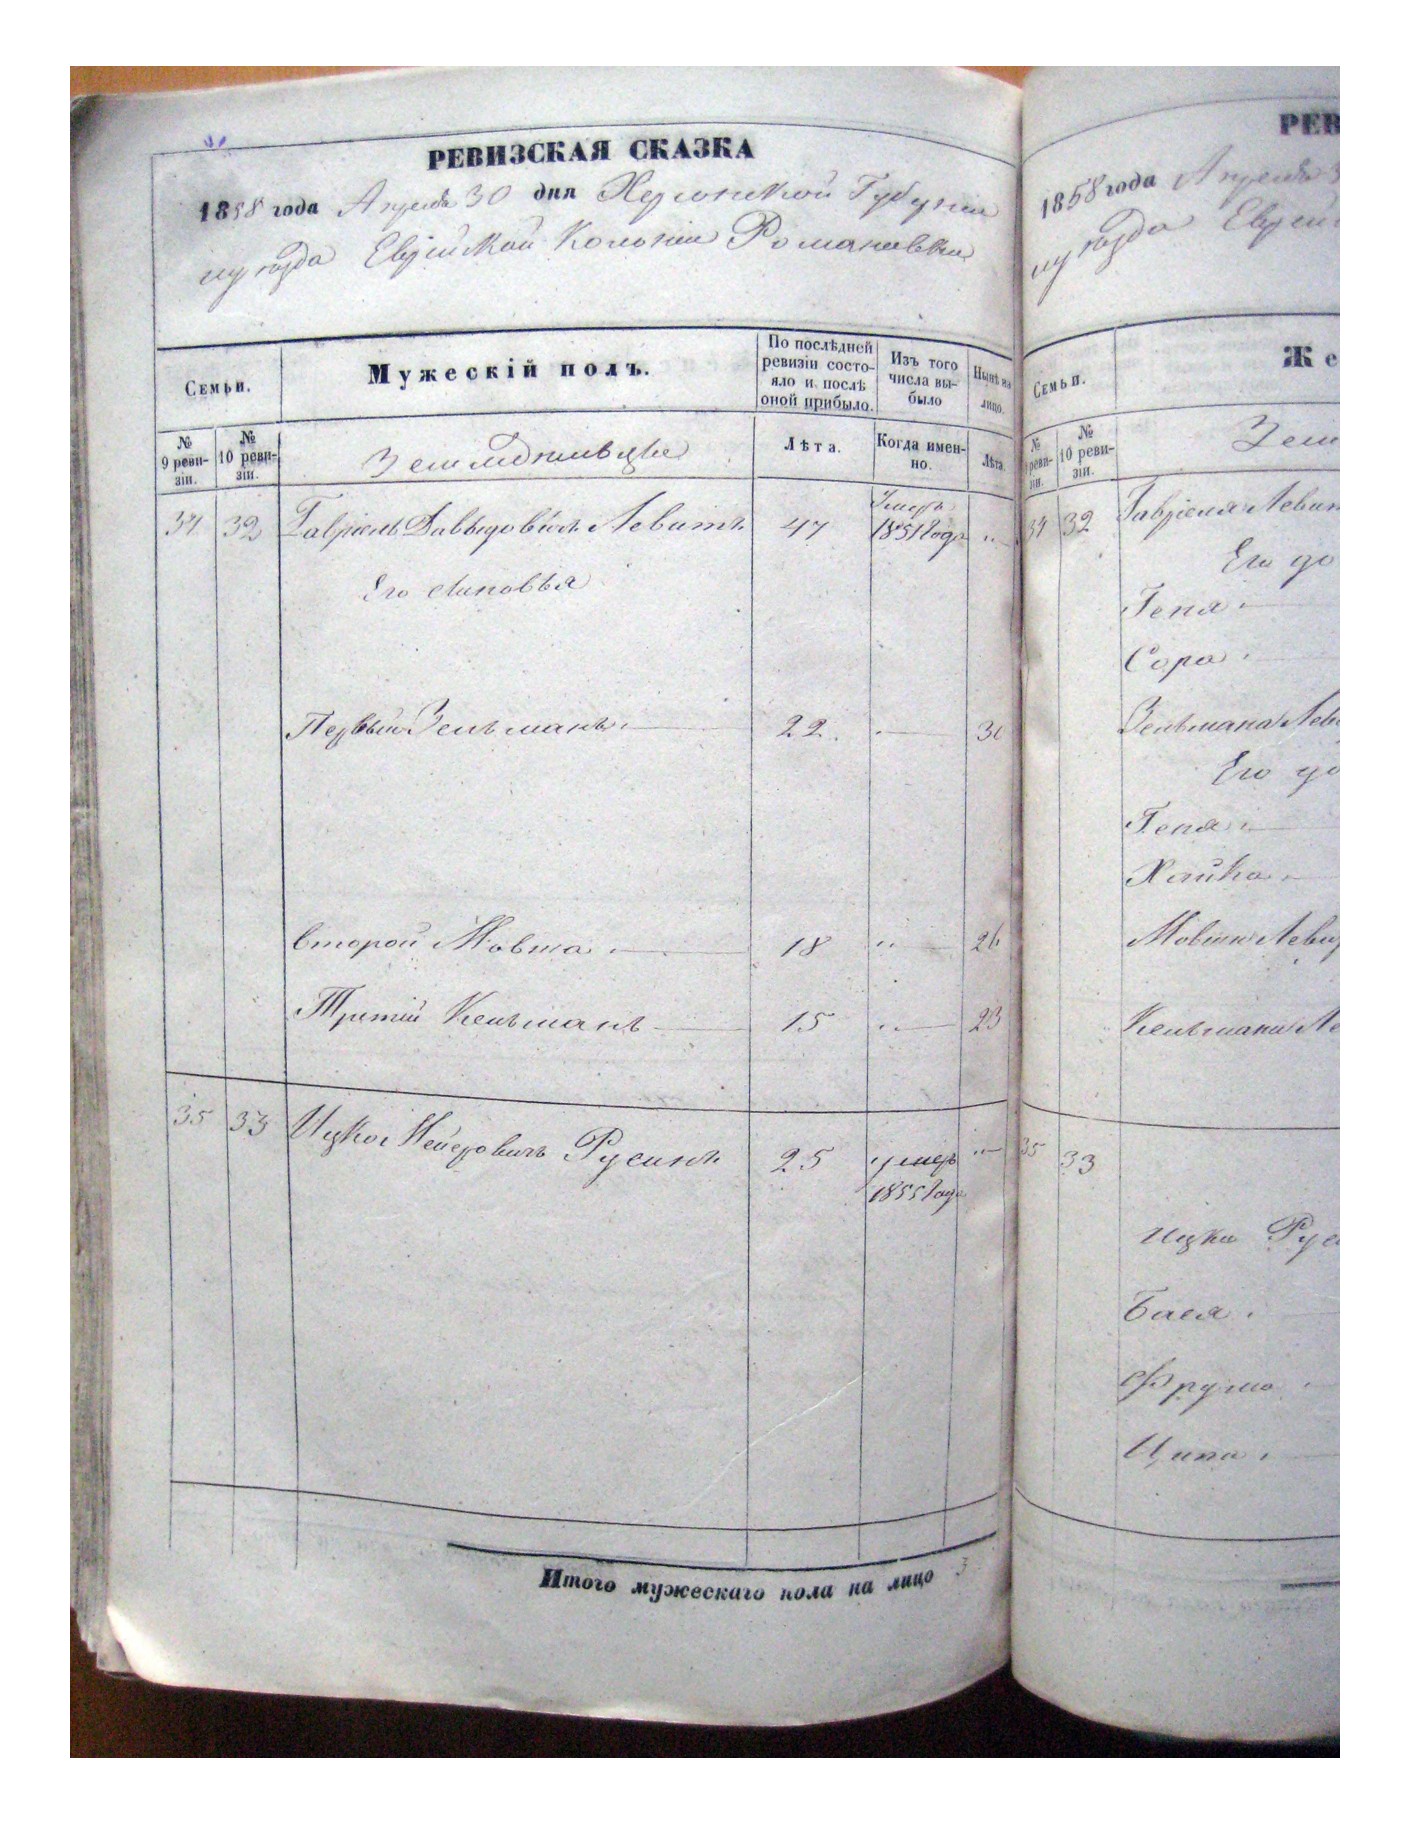 РЕВИЗСКАЯ СКАЗКА
1858 года Апреля 30 дня Херсонской Губерніи
уѣзда Еврейской Колоніи Романовки
Семьи.
Мужескій полъ.
По послѣдней ревизіи состояло и послѣ оной прибыло.
Изъ того числа выбыло
Нынѣ на лицо.
№ 9 ревизіи.
№ 10 ревизіи.
Земледѣльцы
Лѣта.
Когда именно.
Лѣта.
34 32 Гавріель Давыдовичъ Левитъ 47 Умеръ 1851 года „—
Его сыновья
Первый Зельманъ — 22. — 30
второй Мовша — 18 „— 26
Третій Кельманъ — 15 „— 23
35 33 Ицко Мейеровичъ Русинъ 25 умеръ 1855 года „—
Итого мужескаго пола на лицо 3
РЕВ
1858 года Апреля 3
уѣзда Еврей
Семьи.
Же
ревизіи.
№ 10 ревизіи.
Зем
34 32 Гавріеля Левит
Его до
Геня —
Сора —
Зельмана Леви
Его до
Геня —
Хайка —
Мовши Леви
Кельмана Ле
35 33
Ицки Рус
Бася —
Фрума —
Ципа —